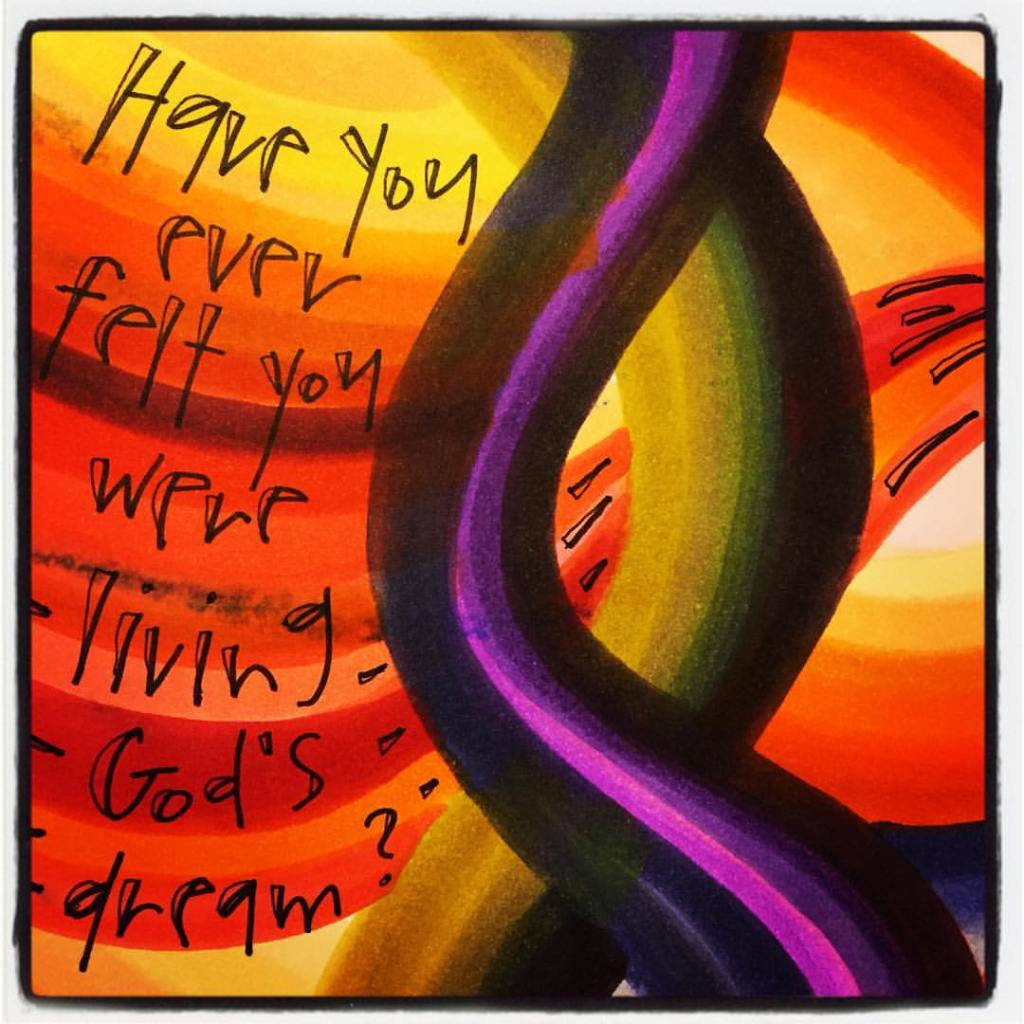 Have you
ever
felt you
were
living
God's
dream?